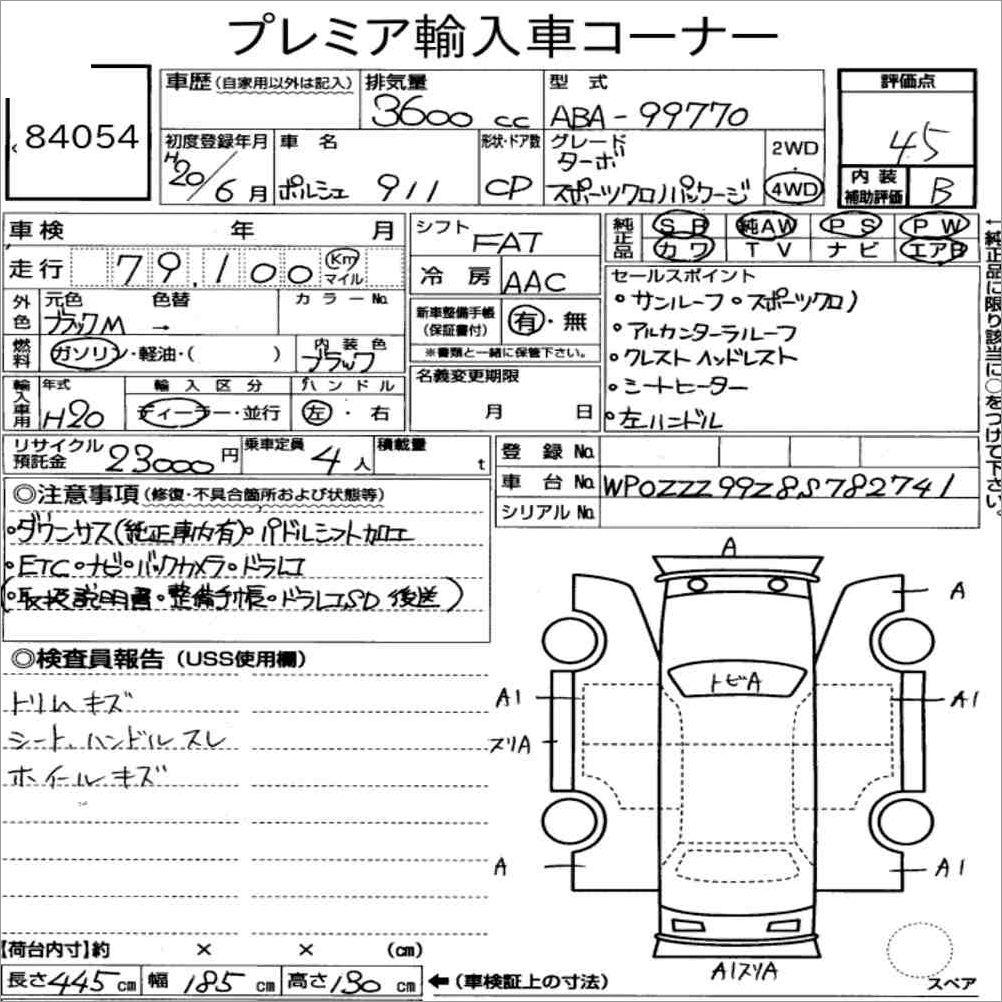 プレミア輸入車コーナー
84054
車歴(自家用以外は記入) 排気量 3600 cc 型式 ABA-99770
評価点 4.5
初度登録年月 H20/6月 車名 ポルシェ 911 形状・ドア数 CP グレード ターボ スポーツクロノパッケージ 2WD 4WD
内装補助評価 B
車検 年 月
シフト FAT
純正品 SR 純AW PS PW
カワ TV ナビ エアB
走行 79,100 Km マイル
冷房 AAC
セールスポイント
・サンルーフ・スポーツクロノ
・アルカンターラルーフ
・クレストヘッドレスト
・シートヒーター
・左ハンドル
←純正品に限り該当に○をつけて下さい。
外色 元色 ブラックM 色替 → カラーNo.
新車整備手帳(保証書付) 有・無
※書類と一緒に保管下さい。
燃料 ガソリン・軽油・( ) 内装色 ブラック
名義変更期限 月 日
輸入車用 年式 H20 輸入区分 ディーラー・並行 ハンドル 左・右
リサイクル預託金 23000円 乗車定員 4人 積載量 t
登録No.
車台No. WP0ZZZ99Z8S782741
シリアルNo.
◎注意事項(修復・不具合箇所および状態等)
・ダウンサス(純正車内有)・パドルシフト加工
・ETC・ナビ・バックカメラ・ドラレコ
(・取扱説明書・整備手帳・ドラレコSD 後送)
◎検査員報告(USS使用欄)
トリムキズ
シート、ハンドルスレ
ホイールキズ
A
A
トビA
A1
A1
スリA
A
A1
A1スリA
スペア
【荷台内寸】約 × × (cm)
長さ445cm 幅185cm 高さ130cm ←(車検証上の寸法)